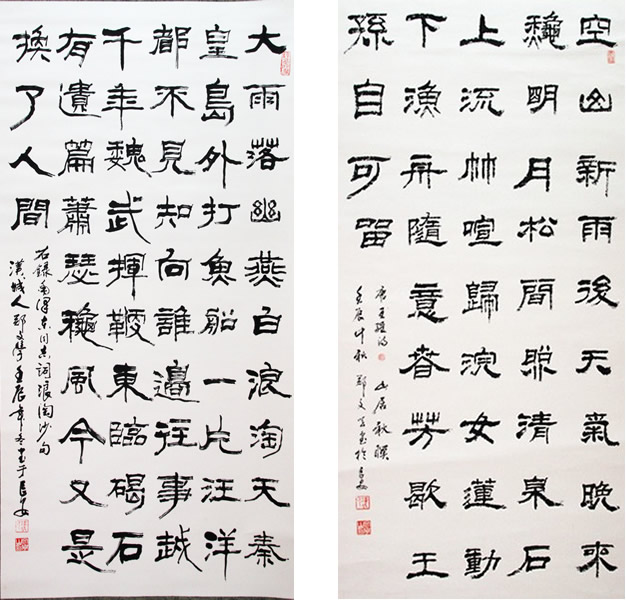 空山新雨後天氣晚來
龝明月松間照清泉石
上流竹喧歸浣女蓮動
下漁舟隨意春芳歇王
孫自可留
唐王維詩 山居秋暝
壬辰中秋 鄭文書於長安
大雨落幽燕白浪淘天秦
皇島外打魚船一片汪洋
都不見知向誰邊往事越
千年魏武揮鞭東臨碣石
有遺篇蕭瑟龝風今又是
換了人間
右錄毛澤東同志詞浪淘沙句
漢城人鄭文壬辰年冬書于長安